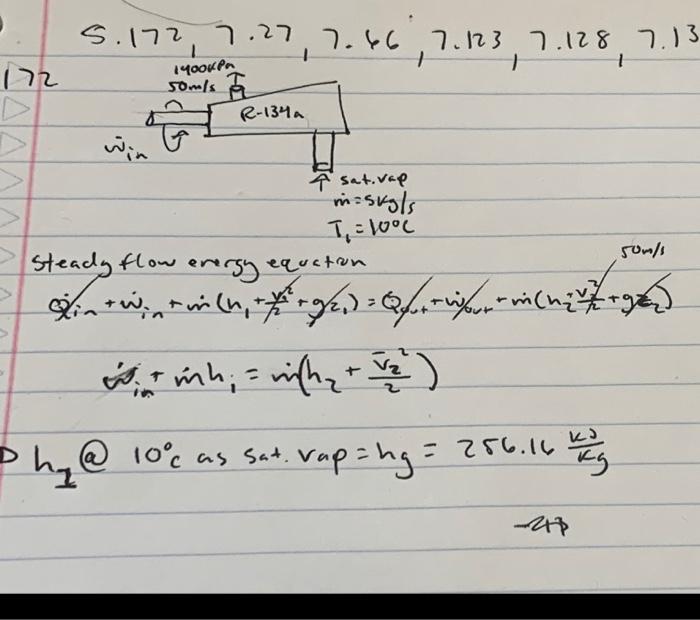 5.172, 7.27, 7.66, 7.123, 7.128, 7.13
172
1400kPa
50m/s
R-134a
ẇin
↑ sat. vap
ṁ = 5kg/s
T₁ = 10°C
Steady flow energy equation
50m/s
Q̇in + ẇin + ṁ(h₁ + v₁²/2 + gz₁) = Q̇out + ẇout + ṁ(h₂ + v₂²/2 + gz₂)
ẇin + ṁh₁ = ṁ(h₂ + v̄₂²/2)
h₁ @ 10°C as sat. vap = hg = 256.16 kJ/kg